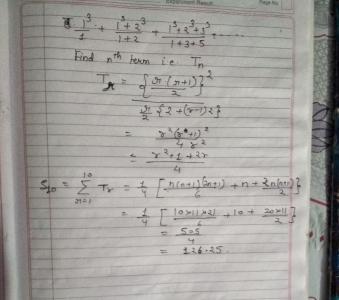 Experiment Result
Page No
1³/1 + 1³+2³/1+2 + 1³+2³+3³/1+3+5 + ......
Find nth term i.e. Tn
Tr = {r(r+1)/2}² / r/2 {2+(r-1)2}
= r²(r+1)²/4r²
= r²+1+2r/4
S10 = 10Σr=1 Tr = 1/4 [n(n+1)(2n+1)/6 + n + 2n(n+1)/2]
= 1/4 [10×11×21/6 + 10 + 20×11/2]
= 505/4
= 126.25